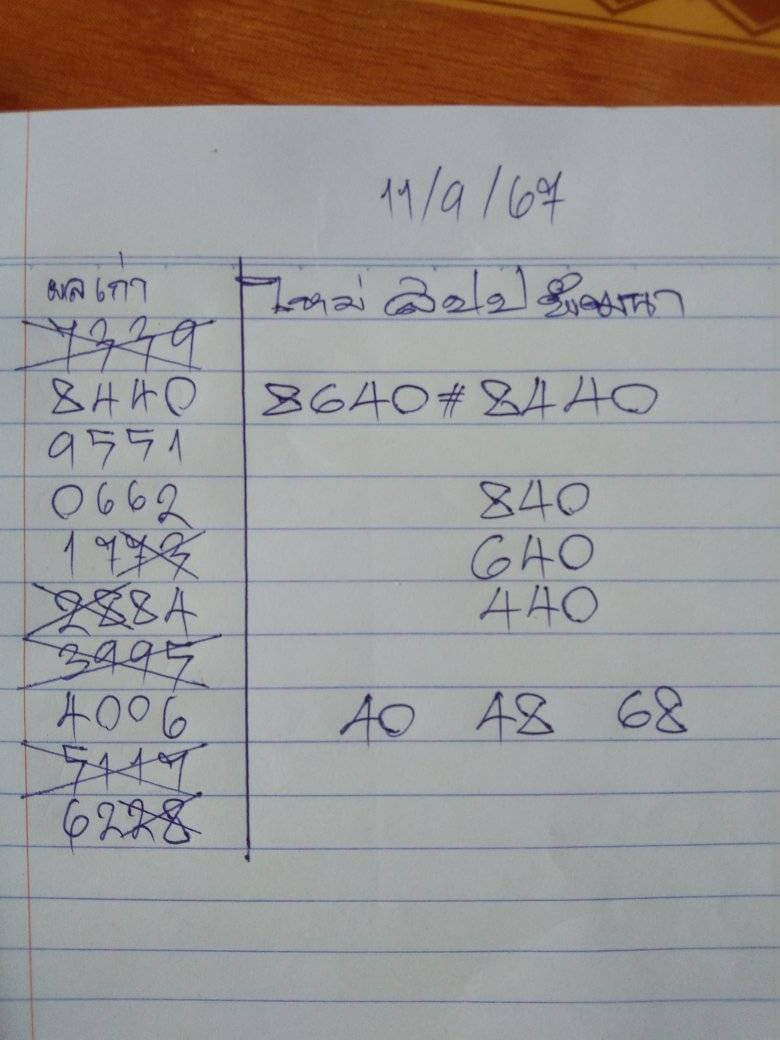 11/9/67
ผลเก่า
ใหม่
7339
8440
8640 # 8440
9551
0662
840
1773
640
2884
440
3995
4006
40 48 68
5117
6228